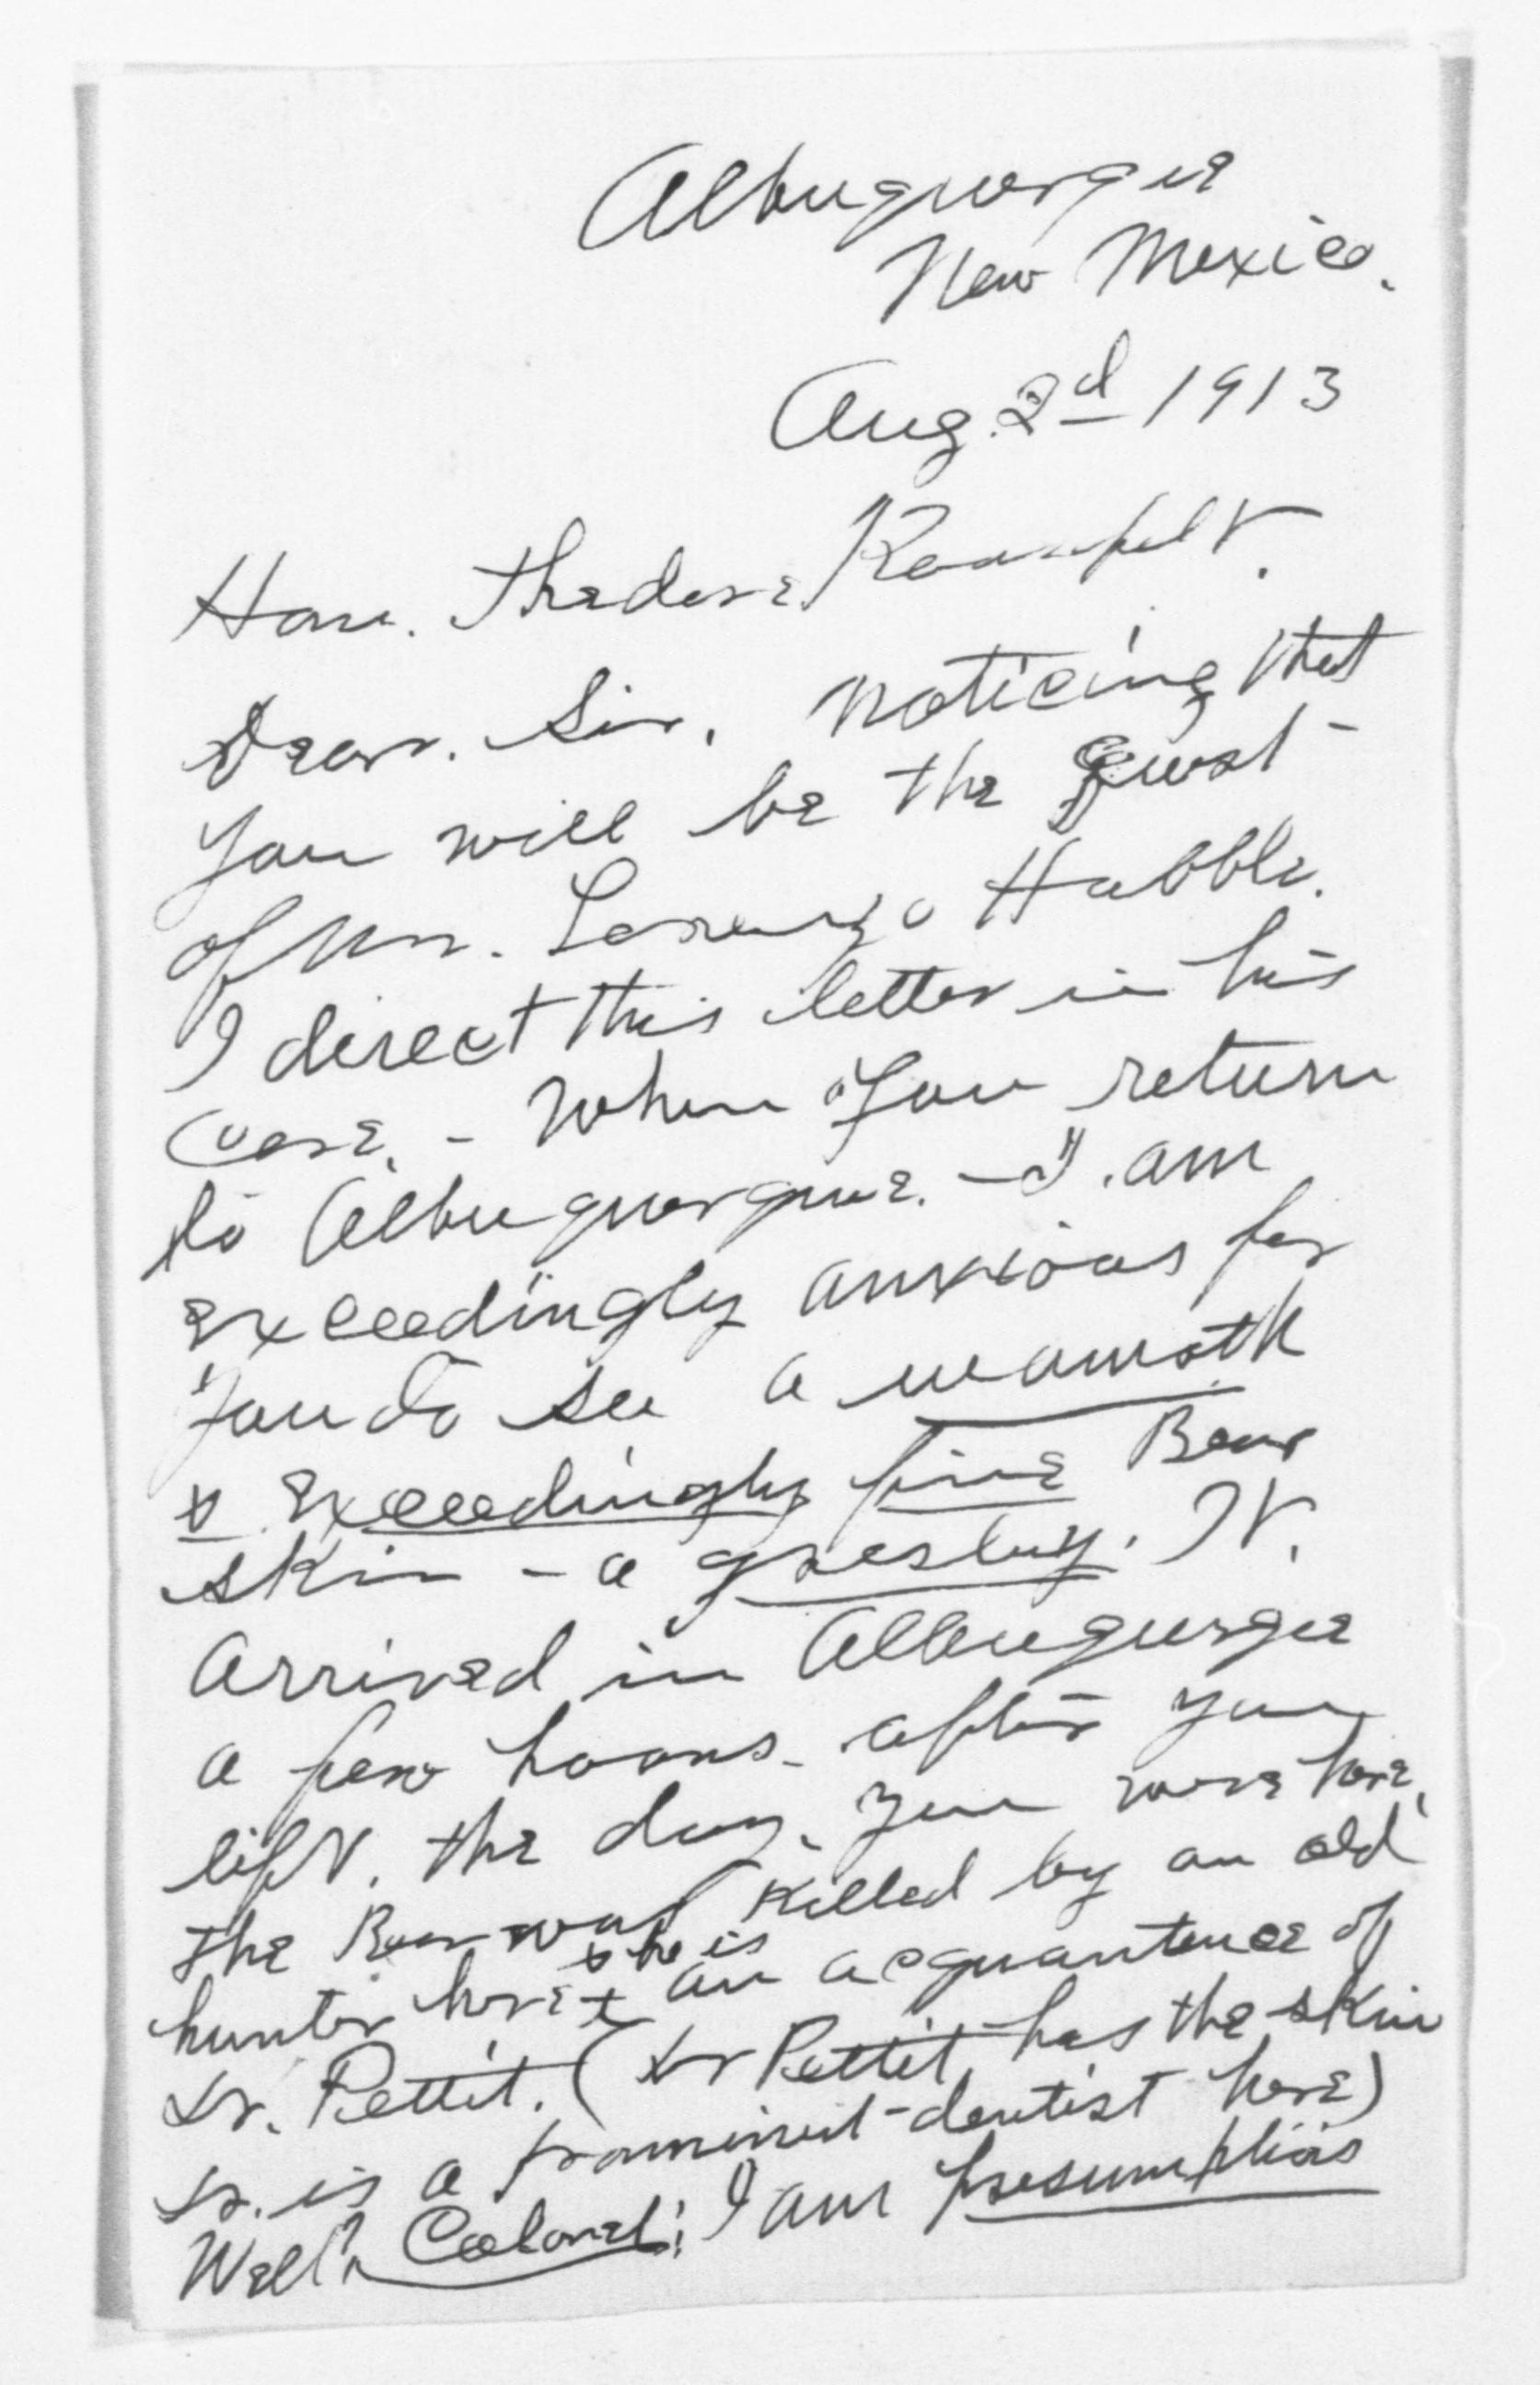 Albuquerque
New Mexico.
Aug. 2d 1913
Hon. Theodore Roosevelt.
Dear. Sir, Noticing that
you will be the guest
of Mr. Lorenzo Hubble.
I direct this letter in his
Care. - When you return
to Albuquerque. - I. am
exceedingly anxious for
you to see a mamoth
& exceedingly fine Bear
skin - a gresley. It.
arrived in Albuquerque
a few hours. after you
left. the day. you were here,
the Bear was killed by an old
hunter here & he is an acquantence of
Dr. Pettit. (Dr Pettit has the skin
Dr. is a prominent dentist here)
Well, Colonel; I am presumptios